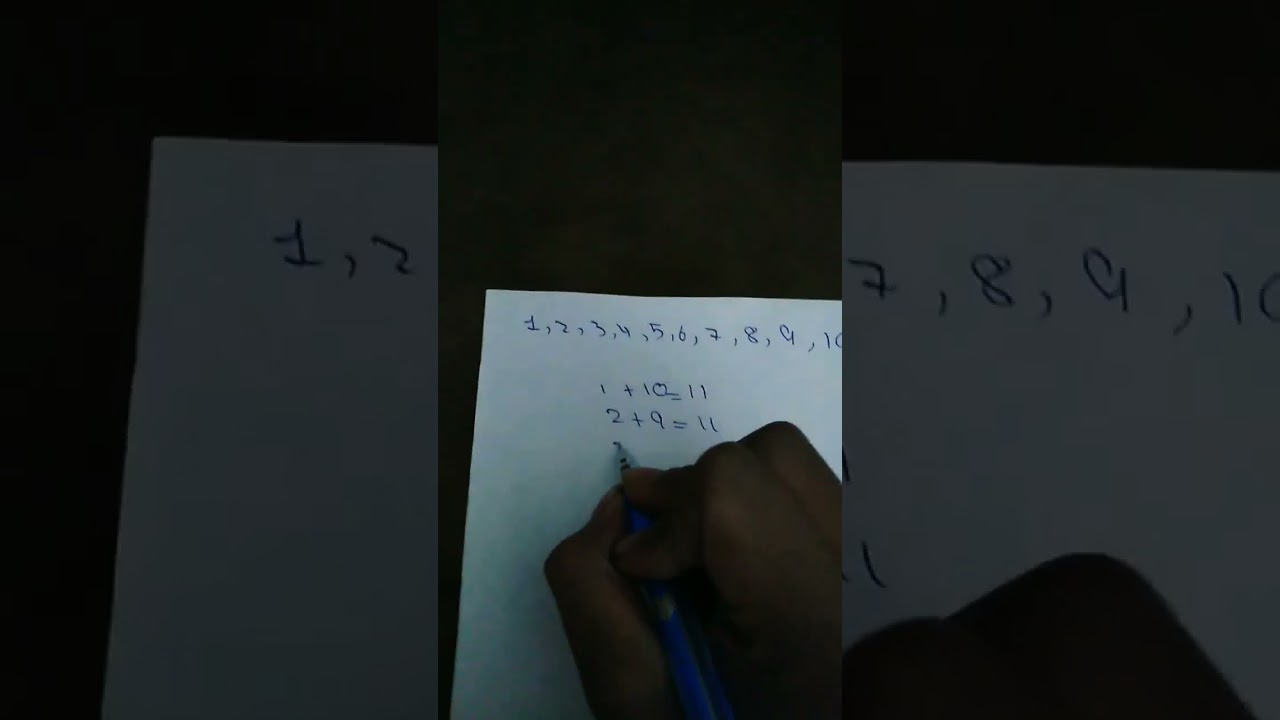 1, 2, 3, 4, 5, 6, 7, 8, 9, 10
1 + 10 = 11
2 + 9 = 11